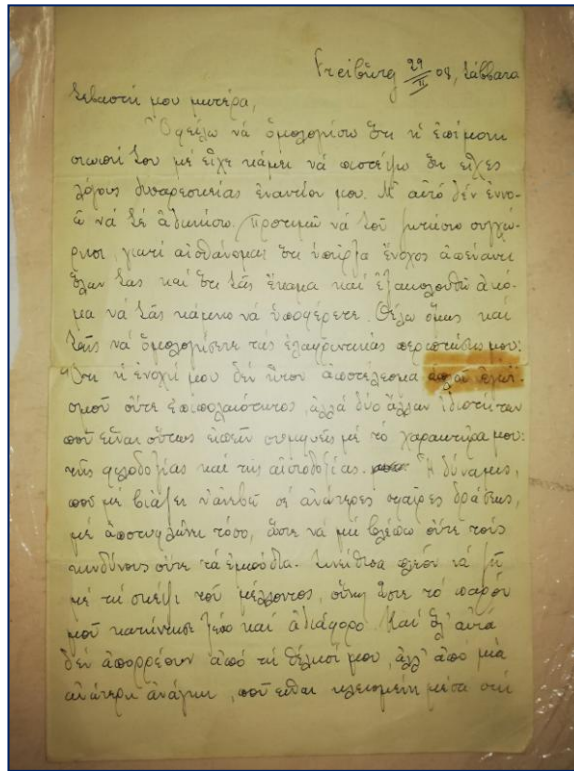 Freiburg 29/II 08, Σάββατο
Σεβαστή μου μητέρα,
Ὀφείλω νὰ ὁμολογήσω ὅτι ἡ ἐπίμονη
σιωπή Σου μὲ εἶχε κάμει νὰ πιστέψω ὅτι εἶχες
λόγους δυσαρεσκείας ἐναντίον μου. Μ' αὐτὸ δὲν ἐννο-
ῶ νὰ Σὲ ἀδικήσω. Προτιμῶ νὰ Σοῦ ζητήσω συγχώ-
ρησι, γιατὶ αἰσθάνομαι ὅτι ὑπῆρξα ἔνοχος ἀπέναντι
ὅλων Σας καὶ ὅτι Σᾶς ἔκαμα καὶ ἐξακολουθῶ ἀκό-
μα νὰ Σᾶς κάμνω νὰ ὑποφέρετε. Θέλω ὅμως καὶ
Σεῖς νὰ ὁμολογήσετε τὰς ἐλαφρυντικὰς περιπτώσεις μου:
Ὅτι ἡ ἐνοχή μου δὲν ἦτον ἀποτέλεσμα ἁπλοῦ ἐγωϊ-
σμοῦ οὔτε ἐπιπολαιότητος, ἀλλὰ δύο ἄλλων ἰδιοτήτων
ποῦ εἶναι οὕτως εἰπεῖν συμφυεῖς μὲ τὸ χαρακτῆρα μου:
τῆς φιλοδοξίας καὶ τῆς αἰσιοδοξίας. Ἡ δύναμις,
ποῦ μὲ βιάζει ν' ἀνεβῶ σὲ ἀνώτερες σφαῖρες δράσεως,
μὲ ἀποτυφλώνει τόσο, ὥστε νὰ μὴ βλέπω οὔτε τοὺς
κινδύνους οὔτε τὰ ἐμπόδια. Συνείθισα πλέον νὰ ζῶ
μὲ τὴ σκέψι τοῦ μέλλοντος, οὕτως ὥστε τὸ παρὸν
μοῦ κατήντησε ξένο καὶ ἀδιάφορο. Καὶ ὅλ' αὐτὰ
δὲν ἀπορρέουν ἀπὸ τὴ θέλησί μου, ἀλλ' ἀπὸ μιὰ
ἀνώτερη ἀνάγκη, ποῦ εἶναι κλεισμένη μέσα στὴ